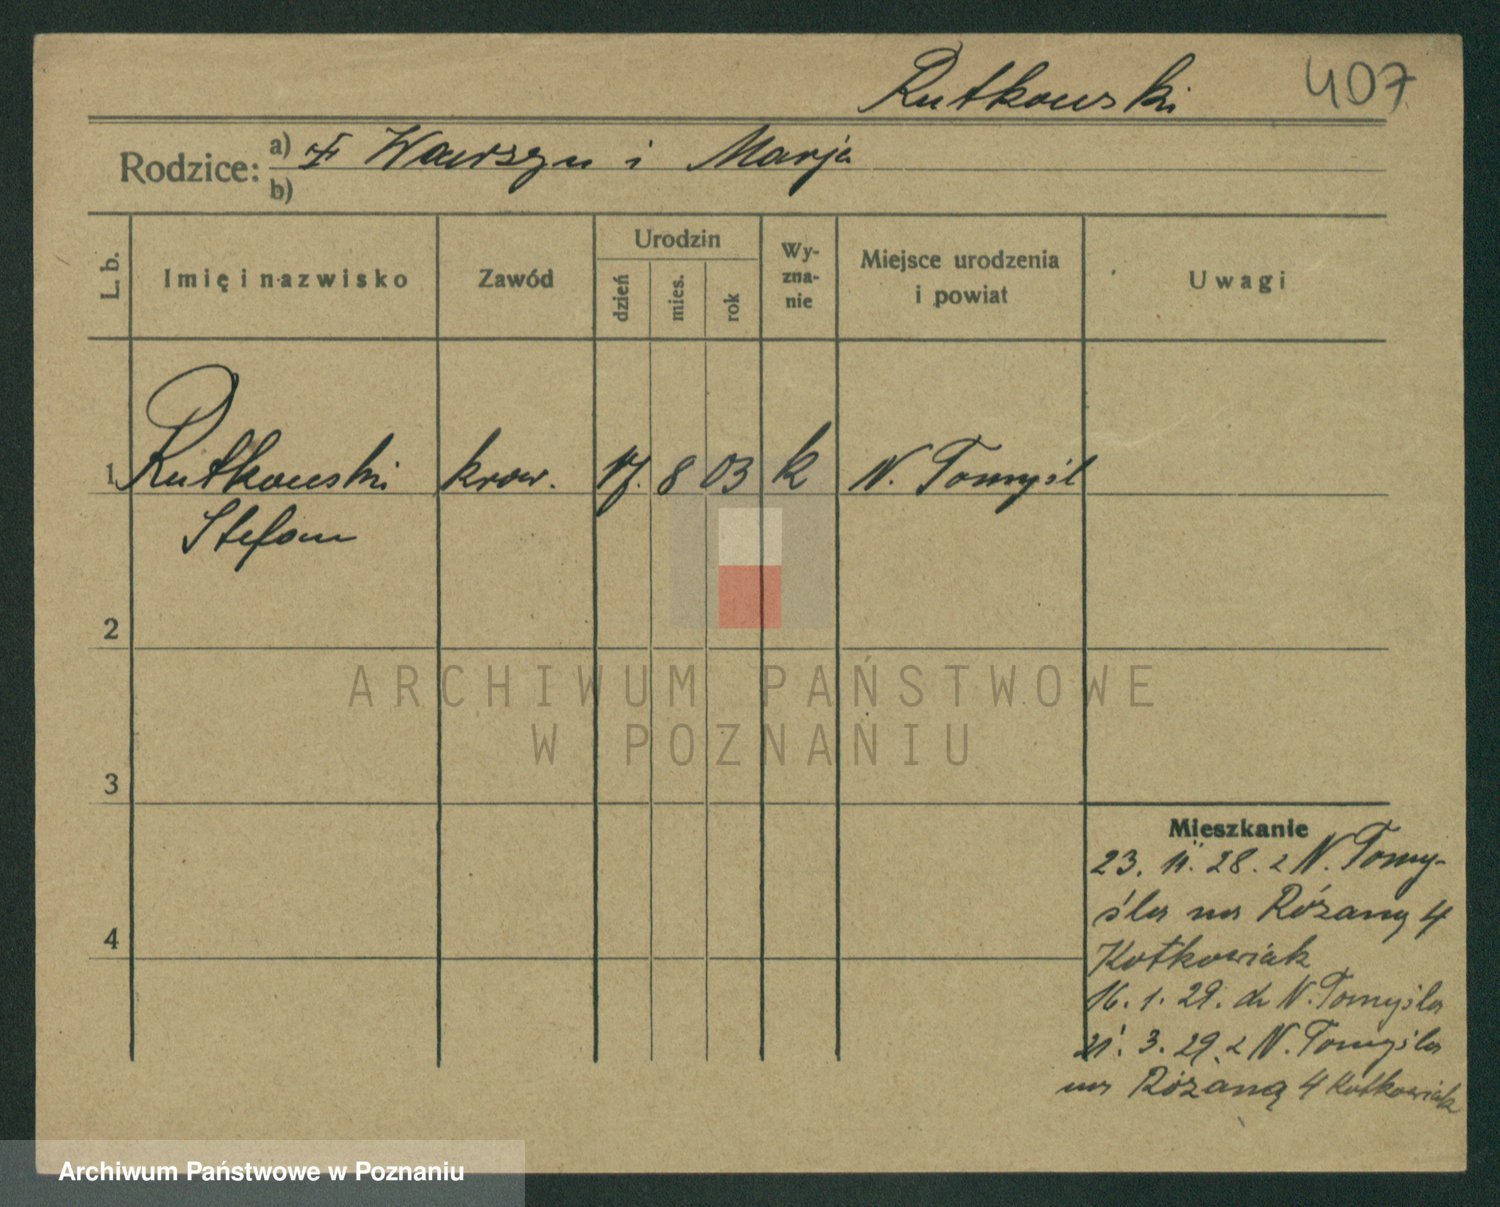 Rutkowski 407
Rodzice: a) ✝ Wawrzyn i Marja
b)
L. b. Imię i nazwisko Zawód Urodzin dzień mies. rok Wy-zna-nie Miejsce urodzenia i powiat Uwagi
1 Rutkowski kraw. 17. 8 03 k N. Tomyśl
Stefan
2
3
4
Mieszkanie
23. 11. 28. z N. Tomy-
śla na Różaną 4
Kotkowiak
16. 1. 29. do N. Tomyśla
21. 3. 29 z N. Tomyśla
na Różaną 4 Kotkowiak
ARCHIWUM PAŃSTWOWE
W POZNANIU
Archiwum Państwowe w Poznaniu